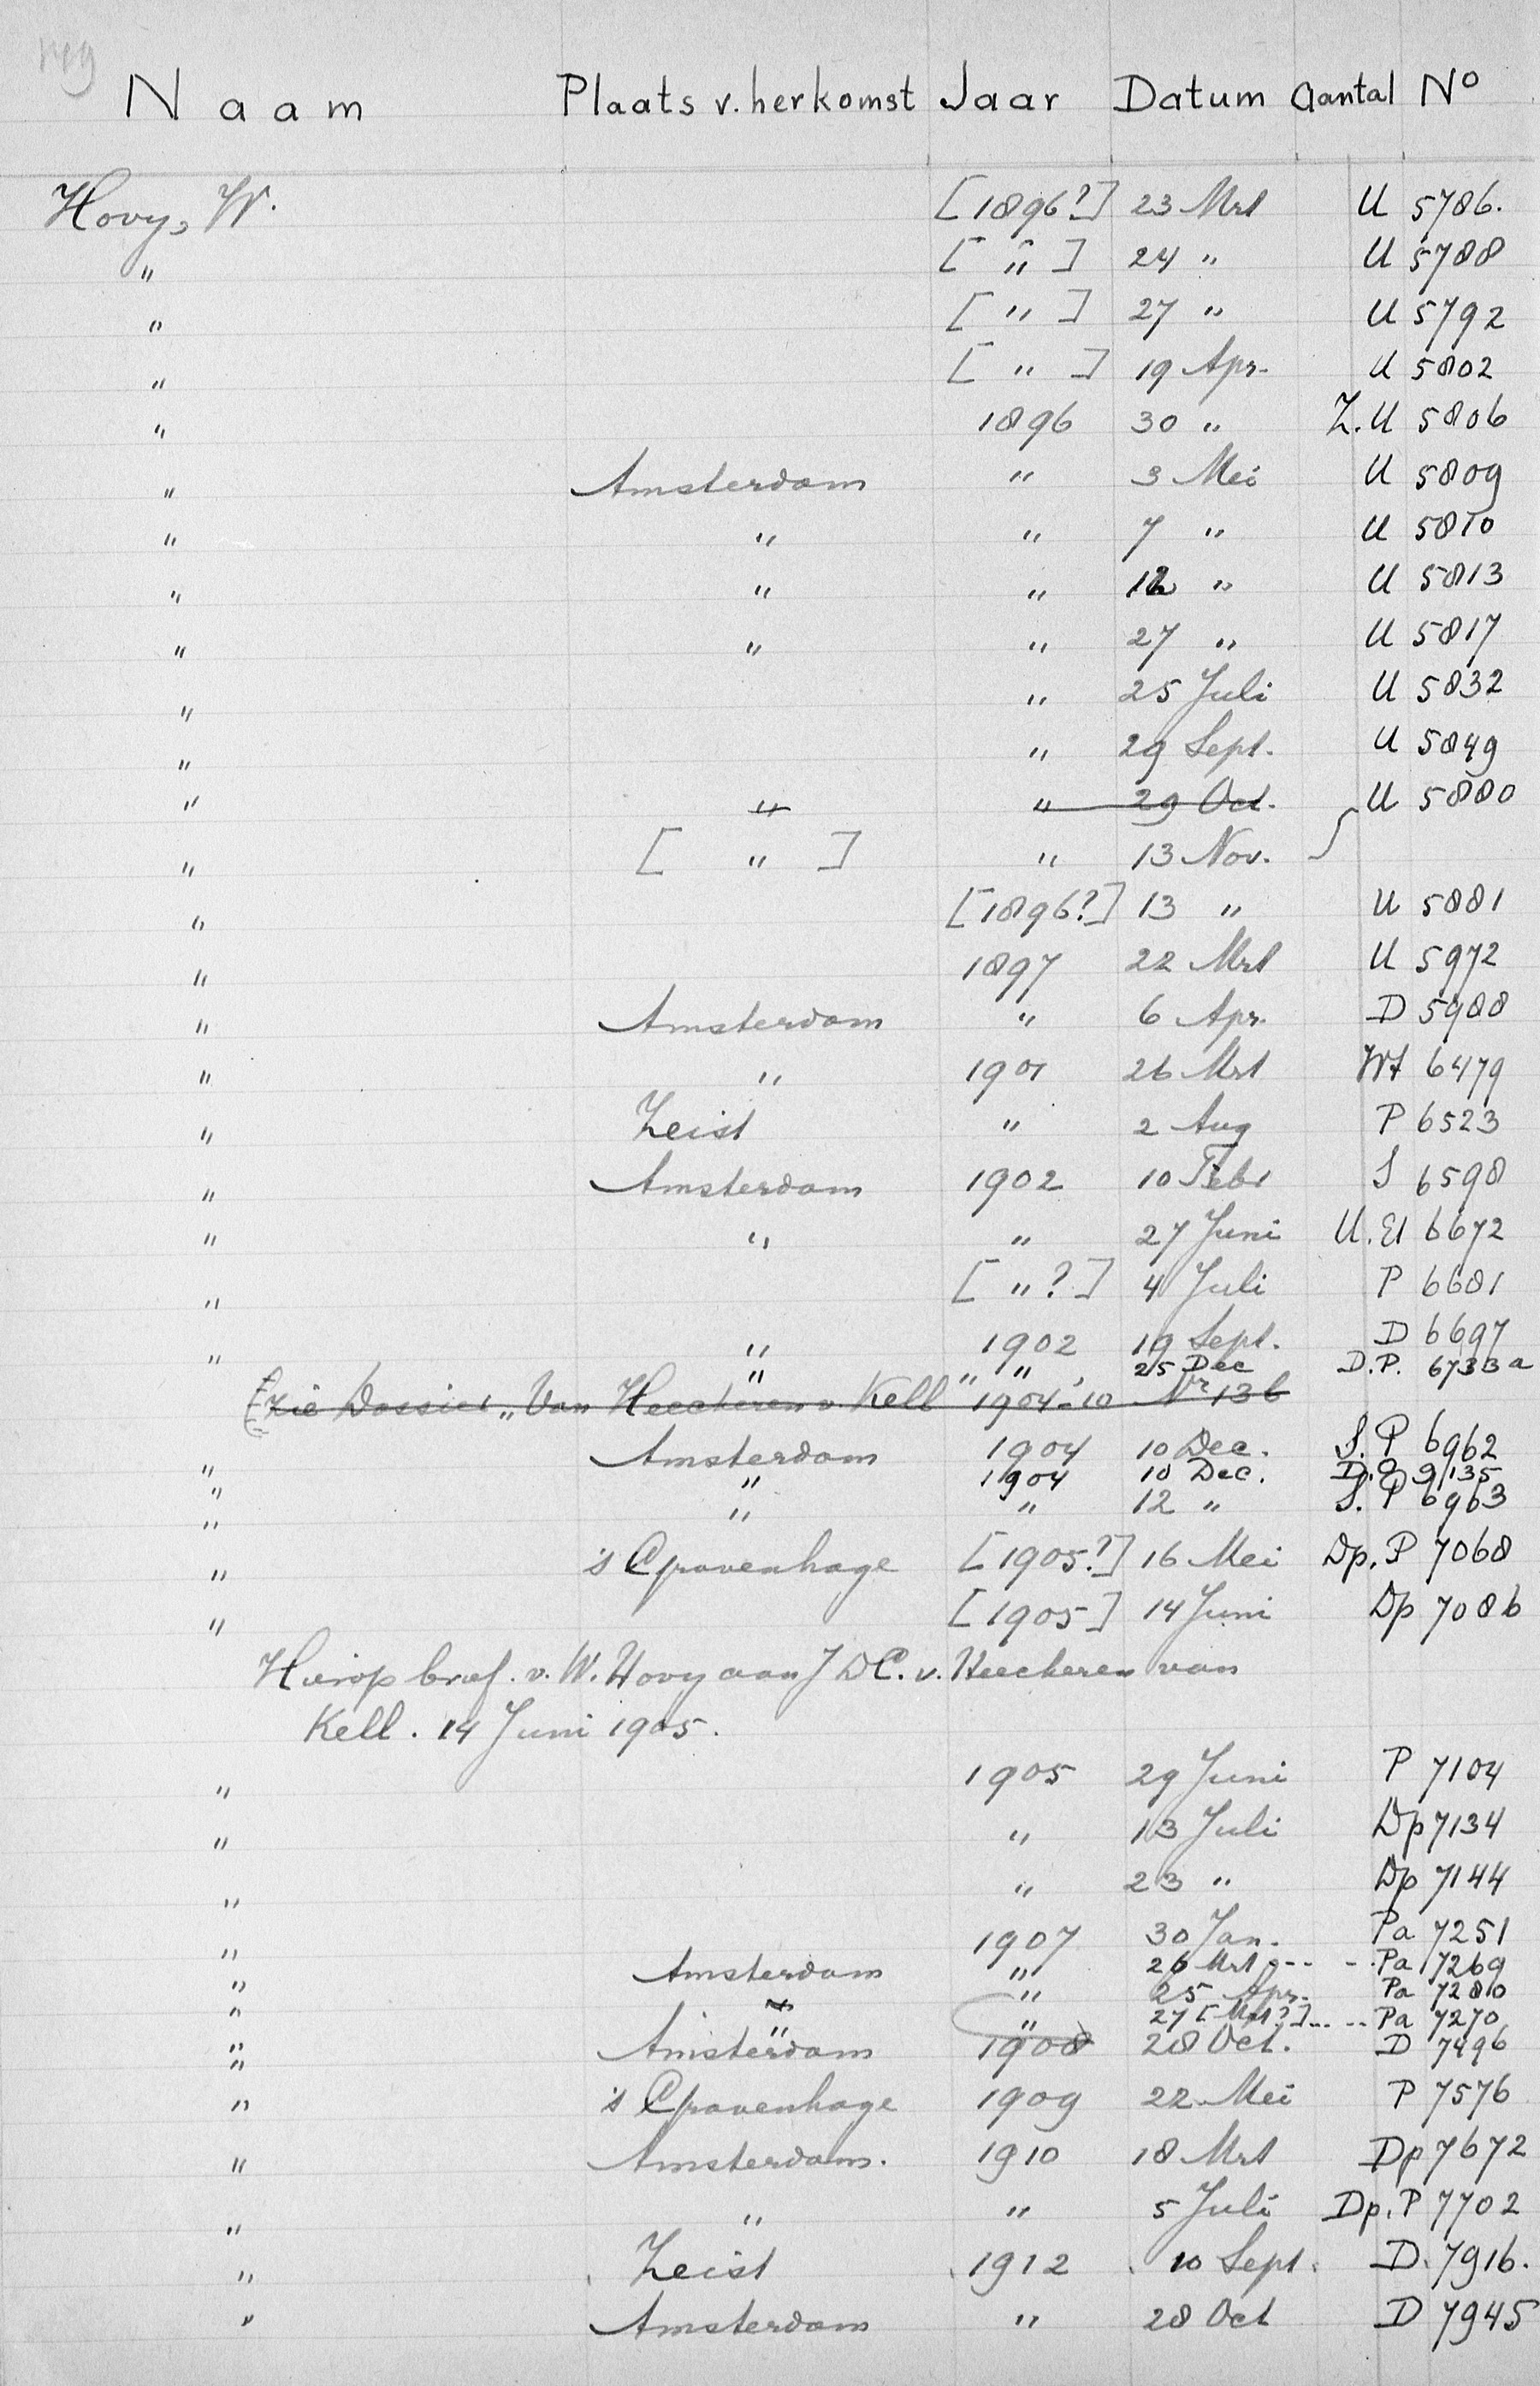 reg
Naam Plaats v. herkomst Jaar Datum Aantal No
Hovy, W. [1896?] 23 Mrt U 5786.
" [ " ] 24 " U 5788
" [ " ] 27 " U 5792
" [ " ] 19 Apr. U 5802
" 1896 30 " Z.U 5806
" Amsterdam " 3 Mei U 5809
" " " 7 " U 5810
" " " 12 " U 5813
" " " 27 " U 5817
" " 25 Juli U 5832
" " 29 Sept. U 5849
" " " 29 Oct. U 5880
" [ " ] " 13 Nov.
" [1896?] 13 " U 5881
" 1897 22 Mrt U 5972
" Amsterdam " 6 Apr. D 5988
" " 1901 26 Mrt Wt 6479
" Zeist " 2 Aug P 6523
" Amsterdam 1902 10 Febr S 6598
" " " 27 Juni U.El 6672
" [ "?] 4 Juli P 6681
" " 1902 19 Sept. D 6697
" " 25 Dec D.P. 6733a
(Zie Dossier „Van Heeckeren v. Kell" 1904-10 Nr 136
" Amsterdam 1904 10 Dec. S.P 6962
" " 1904 10 Dec. 9135
" " " 12 " S.P 6963
" 's Gravenhage [1905?] 16 Mei Dp.P 7068
" [1905] 14 Juni Dp 7086
Hierop brief. v. W. Hovy aan J D C. v. Heeckeren van
Kell. 14 Juni 1905.
" 1905 29 Juni P 7104
" " 13 Juli Dp 7134
" " 23 " Dp 7144
" 1907 30 Jan. Pa 7251
" Amsterdam " 26 Mrt --- -- Pa 7269
" " " 25 Apr. Pa 7280
" " " 27 [Mrt?] --- -- Pa 7270
" Amsterdam 1908 28 Oct. D 7496
" 's Gravenhage 1909 22 Mei P 7576
" Amsterdam. 1910 18 Mrt Dp 7672
" " " 5 Juli Dp.P 7702
" Zeist 1912 10 Sept. D. 7916.
" Amsterdam " 28 Oct D 7945